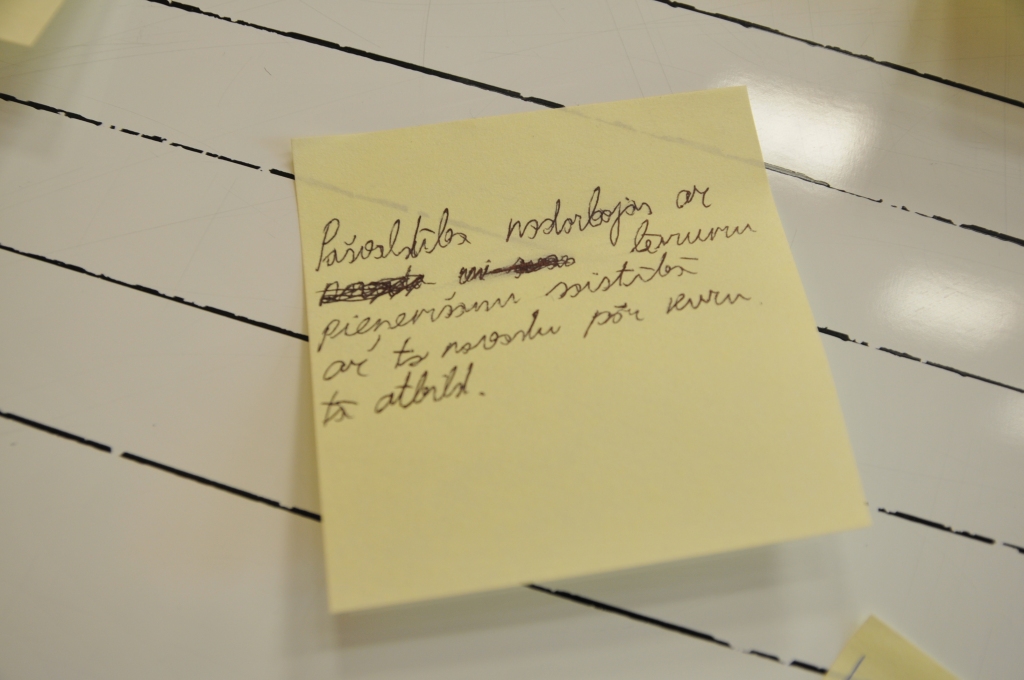 Pašvaldība nodarbojas ar
lēmumu
pieņemšanu saistībā
ar to novadu pār kuru
tā atbild.